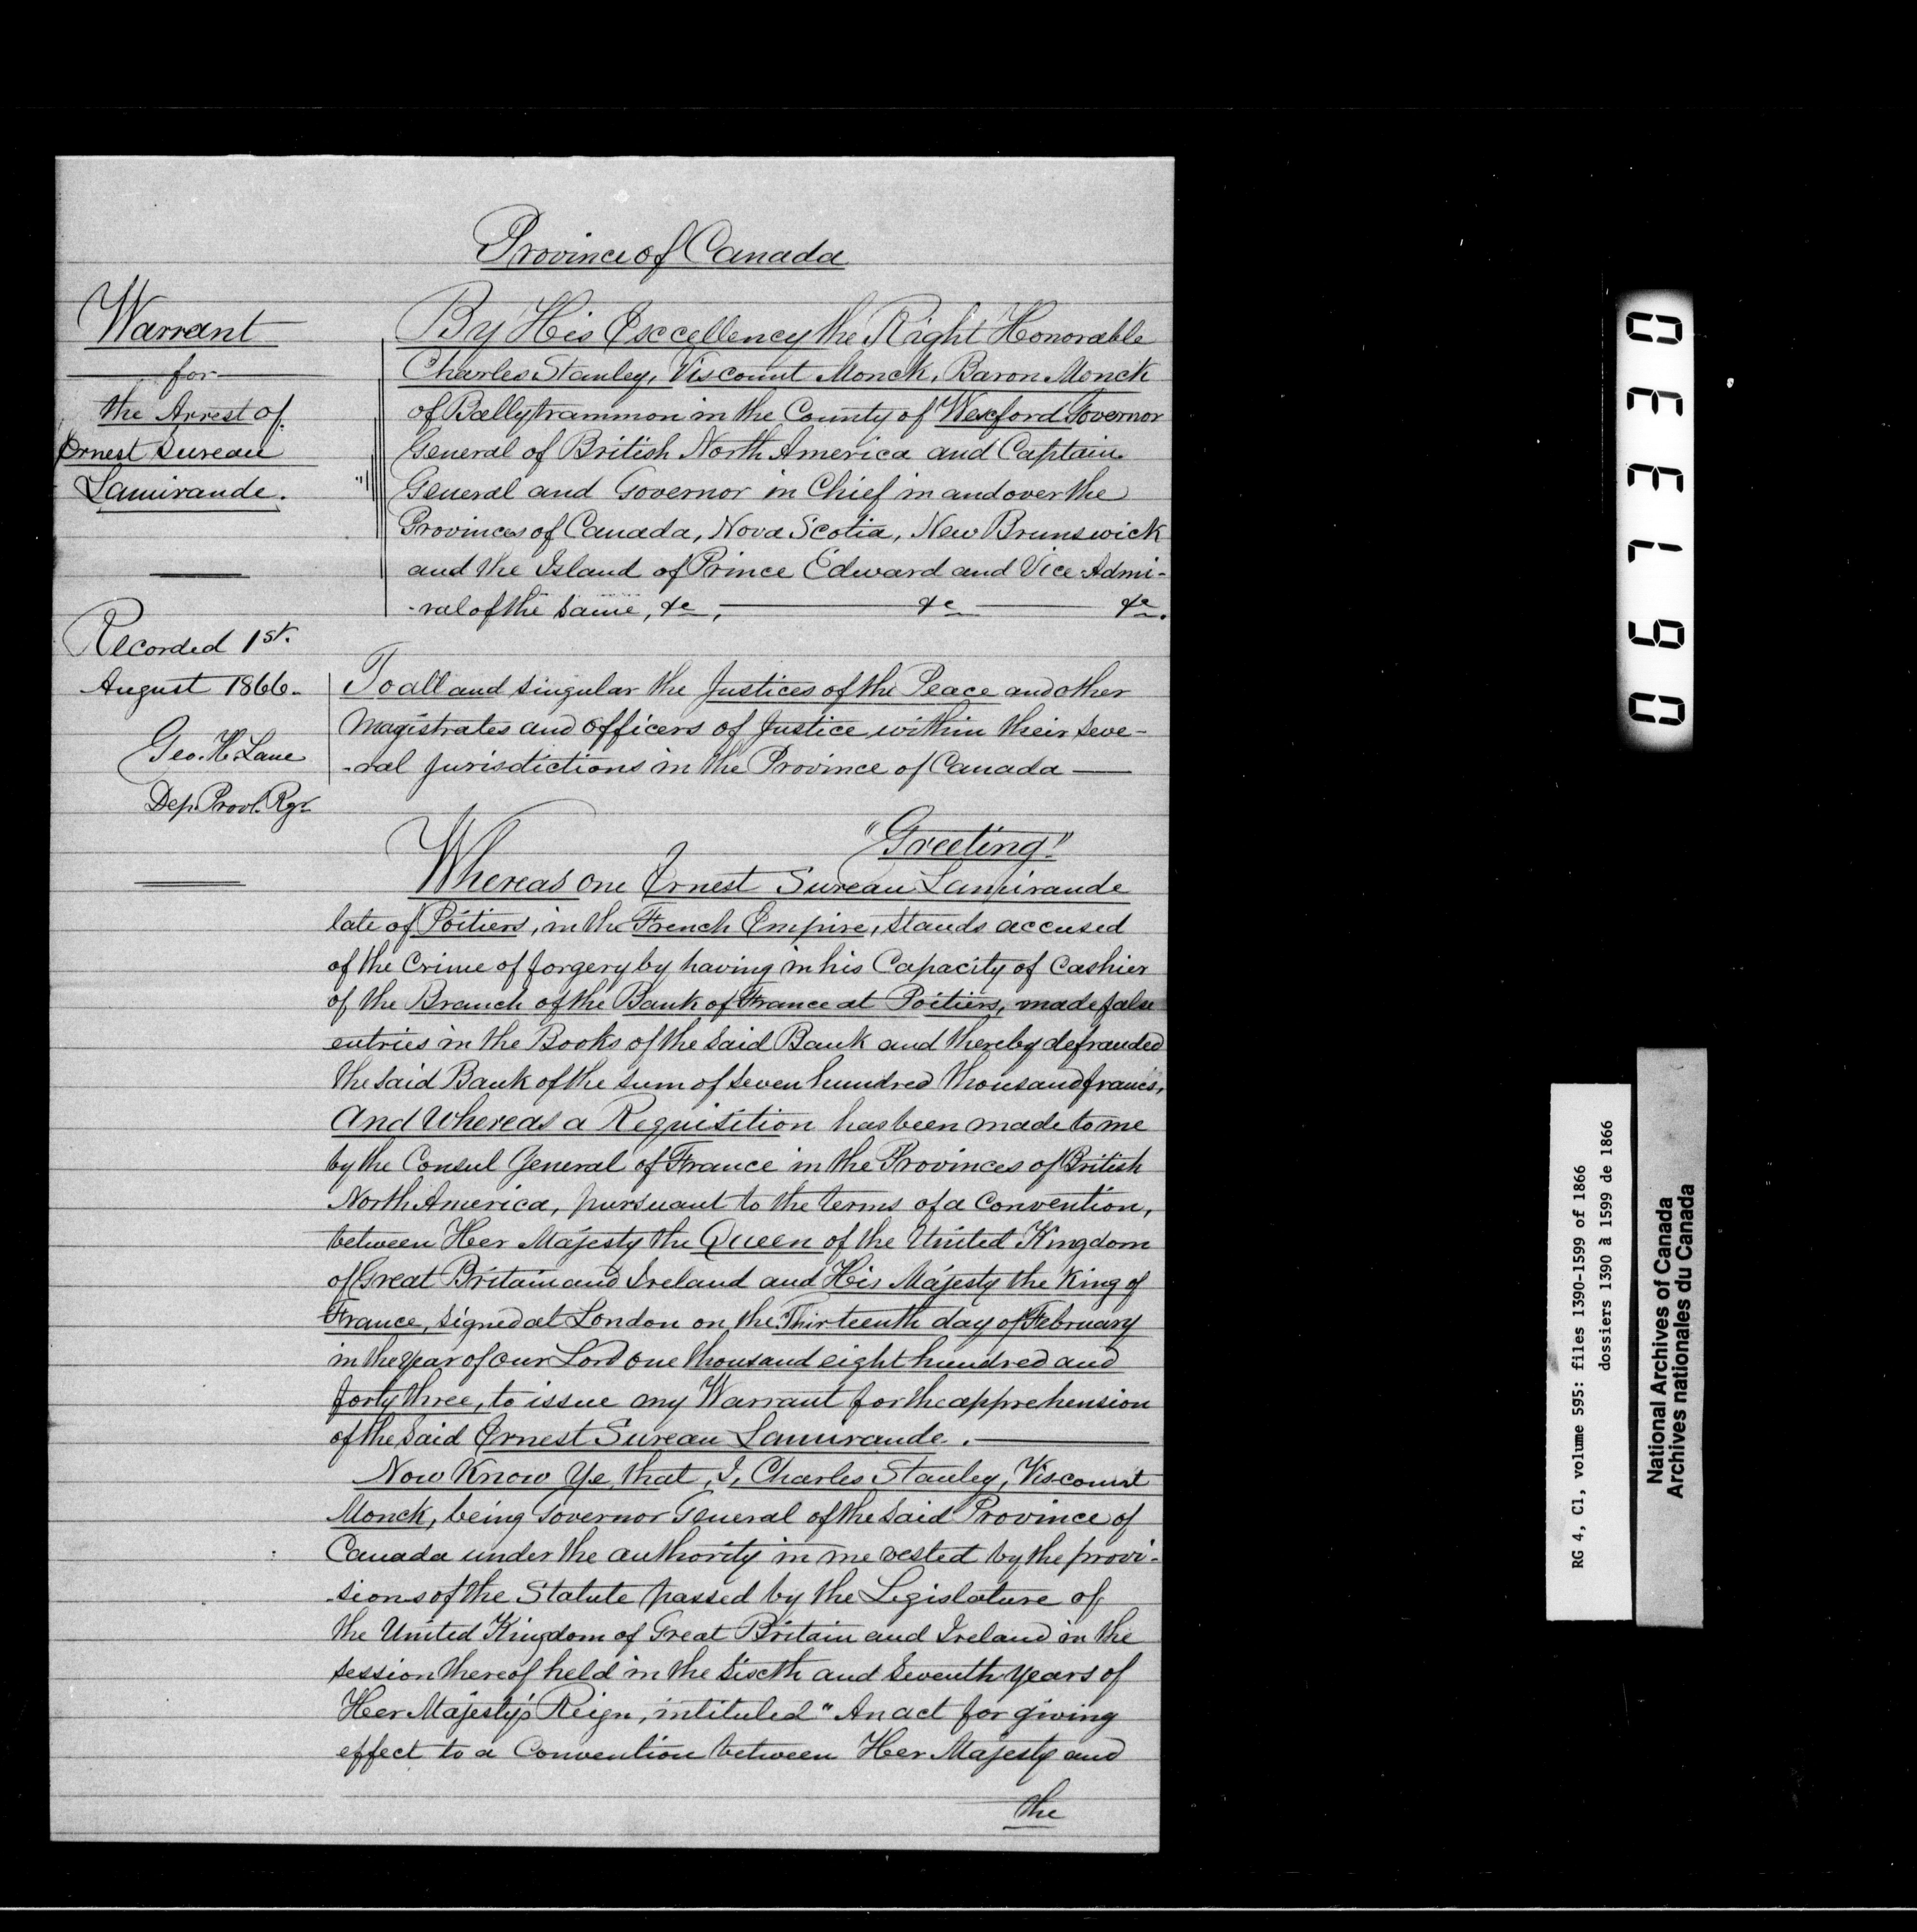 Province of Canada
Warrant
for
the Arrest of
Ernest Sureau
Lamirande.
Recorded 1st.
August 1866.
Geo. H. Lane
Dep. Provl. Rgr.
By His Excellency the Right Honorable
Charles Stanley, Viscount Monck, Baron Monck
of Ballytrammon in the County of Wexford Governor
General of British North America and Captain
General and Governor in Chief in and over the
Provinces of Canada, Nova Scotia, New Brunswick
and the Island of Prince Edward and Vice Admi-
-ral of the same, &c, — &c — &c.
To all and singular the Justices of the Peace and other
Magistrates and officers of Justice within their seve-
-ral jurisdictions in the Province of Canada —
"Greeting"
Whereas one Ernest Sureau Lamirande
late of Poitiers, in the French Empire, stands accused
of the Crime of forgery by having in his Capacity of Cashier
of the Branch of the Bank of France at Poitiers, made false
entries in the Books of the said Bank and thereby defrauded
the said Bank of the sum of seven hundred thousand francs,
And Whereas a Requisition has been made to me
by the Consul General of France in the Provinces of British
North America, pursuant to the terms of a Convention,
between Her Majesty the Queen of the United Kingdom
of Great Britain and Ireland and His Majesty the King of
France, signed at London on the Thirteenth day of February
in the year of our Lord one thousand eight hundred and
forty three, to issue my Warrant for the apprehension
of the said Ernest Sureau Lamirande. —
Now Know Ye, that, I, Charles Stanley, Viscount
Monck, being Governor General of the said Province of
Canada under the authority in me vested by the provi-
-sions of the Statute passed by the Legislature of
the United Kingdom of Great Britain and Ireland in the
session thereof held in the sixth and seventh years of
Her Majesty's Reign, intituled "An act for giving
effect to a Convention between Her Majesty and
the
067330
RG 4, C1, volume 595: files 1390-1599 of 1866
dossiers 1390 à 1599 de 1866
National Archives of Canada
Archives nationales du Canada